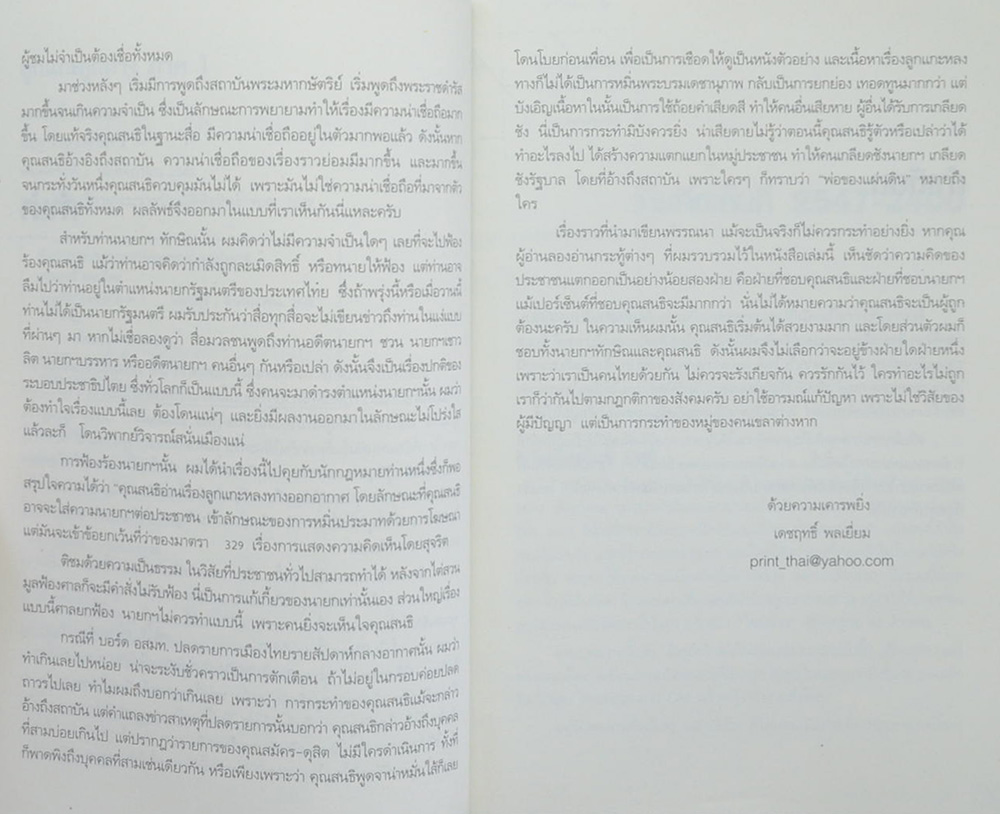 ผู้ชมไม่จำเป็นต้องเชื่อทั้งหมด
มาช่วงหลังๆ เริ่มมีการพูดถึงสถาบันพระมหากษัตริย์ เริ่มพูดถึงพระราชดำรัส
มากขึ้นจนเกินความจำเป็น ซึ่งเป็นลักษณะการพยายามทำให้เรื่องมีความน่าเชื่อถือมาก
ขึ้น โดยแท้จริงคุณสนธิในฐานะสื่อ มีความน่าเชื่อถืออยู่ในตัวมากพอแล้ว ดังนั้นหาก
คุณสนธิอ้างอิงถึงสถาบัน ความน่าเชื่อถือของเรื่องราวย่อมมีมากขึ้น และมากขึ้น
จนกระทั่งวันหนึ่งคุณสนธิควบคุมมันไม่ได้ เพราะมันไม่ใช่ความน่าเชื่อถือที่มาจากตัว
ของคุณสนธิทั้งหมด ผลลัพธ์จึงออกมาในแบบที่เราเห็นกันนี่แหละครับ
สำหรับท่านนายกฯ ทักษิณนั้น ผมคิดว่าไม่มีความจำเป็นใดๆ เลยที่จะไปฟ้อง
ร้องคุณสนธิ แม้ว่าท่านอาจคิดว่ากำลังถูกละเมิดสิทธิ์ หรือทนายให้ฟ้อง แต่ท่านอาจ
ลืมไปว่าท่านอยู่ในตำแหน่งนายกรัฐมนตรีของประเทศไทย ซึ่งถ้าพรุ่งนี้หรือเมื่อวานนี้
ท่านไม่ได้เป็นนายกรัฐมนตรี ผมรับประกันว่าสื่อทุกสื่อจะไม่เขียนข่าวถึงท่านในแง่แบบ
ที่ผ่านๆ มา หากไม่เชื่อลองดูว่า สื่อมวลชนพูดถึงท่านอดีตนายกฯ ชวน นายกฯเชาว
ลิต นายกฯบรรหาร หรืออดีตนายกฯ คนอื่นๆ กันหรือเปล่า ดังนั้นจึงเป็นเรื่องปกติของ
ระบอบประชาธิปไตย ซึ่งทั่วโลกก็เป็นแบบนี้ ซึ่งคนจะมาดำรงตำแหน่งนายกฯนั้น ผมว่า
ต้องทำใจเรื่องแบบนี้เลย ต้องโดนแน่ๆ และยิ่งมีผลงานออกมาในลักษณะไม่โปร่งใส
แล้วละก็ โดนวิพากย์วิจารณ์สนั่นเมืองแน่
การฟ้องร้องนายกฯนั้น ผมได้นำเรื่องนี้ไปคุยกับนักกฎหมายท่านหนึ่งซึ่งก็พอ
สรุปใจความได้ว่า "คุณสนธิอ่านเรื่องลูกแกะหลงทางออกอากาศ โดยลักษณะที่คุณสนธิ
อาจจะใส่ความนายกฯต่อประชาชน เข้าลักษณะของการหมิ่นประมาทด้วยการโฆษณา
แต่มันจะเข้าข้อยกเว้นที่ว่าของมาตรา 329 เรื่องการแสดงความคิดเห็นโดยสุจริต
ติชมด้วยความเป็นธรรม ในวิสัยที่ประชาชนทั่วไปสามารถทำได้ หลังจากไต่สวน
มูลฟ้องศาลก็จะมีคำสั่งไม่รับฟ้อง นี่เป็นการแก้เกี้ยวของนายกเท่านั้นเอง ส่วนใหญ่เรื่อง
แบบนี้ศาลยกฟ้อง นายกฯไม่ควรทำแบบนี้ เพราะคนยิ่งจะเห็นใจคุณสนธิ
กรณีที่ บอร์ด อสมท. ปลดรายการเมืองไทยรายสัปดาห์กลางอากาศนั้น ผมว่า
ทำเกินเลยไปหน่อย น่าจะระงับชั่วคราวเป็นการตักเตือน ถ้าไม่อยู่ในกรอบค่อยปลด
ถาวรไปเลย ทำไมผมถึงบอกว่าเกินเลย เพราะว่า การกระทำของคุณสนธิแม้จะกล่าว
อ้างถึงสถาบัน แต่คำแถลงข่าวสาเหตุที่ปลดรายการนั้นบอกว่า คุณสนธิกล่าวอ้างถึงบุคคล
ที่สามบ่อยเกินไป แต่ปรากฏว่ารายการของคุณสมัคร-ดุสิต ไม่มีใครดำเนินการ ทั้งที่
ก็พาดพิงถึงบุคคลที่สามเช่นเดียวกัน หรือเพียงเพราะว่า คุณสนธิพูดจาน่าหมั่นไส้ก็เลย
โดนโบยก่อนเพื่อน เพื่อเป็นการเชือดให้ดูเป็นหนังตัวอย่าง และเนื้อหาเรื่องลูกแกะหลง
ทางก็ไม่ได้เป็นการหมิ่นพระบรมเดชานุภาพ กลับเป็นการยกย่อง เทอดทูนมากกว่า แต่
บังเอิญเนื้อหาในนั้นเป็นการใช้ถ้อยคำเสียดสี ทำให้คนอื่นเสียหาย ผู้อื่นได้รับการเกลียด
ชัง นี่เป็นการกระทำมิบังควรยิ่ง น่าเสียดายไม่รู้ว่าตอนนี้คุณสนธิรู้ตัวหรือเปล่าว่าได้
ทำอะไรลงไป ได้สร้างความแตกแยกในหมู่ประชาชน ทำให้คนเกลียดชังนายกฯ เกลียด
ชังรัฐบาล โดยที่อ้างถึงสถาบัน เพราะใครๆ ก็ทราบว่า "พ่อของแผ่นดิน" หมายถึง
ใคร
เรื่องราวที่นำมาเขียนพรรณนา แม้จะเป็นจริงก็ไม่ควรกระทำอย่างยิ่ง หากคุณ
ผู้อ่านลองอ่านกระทู้ต่างๆ ที่ผมรวบรวมไว้ในหนังสือเล่มนี้ เห็นชัดว่าความคิดของ
ประชาชนแตกออกเป็นอย่างน้อยสองฝ่าย คือฝ่ายที่ชอบคุณสนธิและฝ่ายที่ชอบนายกฯ
แม้เปอร์เซ็นต์ที่ชอบคุณสนธิจะมีมากกว่า นั่นไม่ได้หมายความว่าคุณสนธิจะเป็นผู้ถูก
ต้องนะครับ ในความเห็นผมนั้น คุณสนธิเริ่มต้นได้สวยงามมาก และโดยส่วนตัวผมก็
ชอบทั้งนายกฯทักษิณและคุณสนธิ ดังนั้นผมจึงไม่เลือกว่าจะอยู่ข้างฝ่ายใดฝ่ายหนึ่ง
เพราะว่าเราเป็นคนไทยด้วยกัน ไม่ควรจะรังเกียจกัน ควรรักกันไว้ ใครทำอะไรไม่ถูก
เราก็ว่ากันไปตามกฎกติกาของสังคมครับ อย่าใช้อารมณ์แก้ปัญหา เพราะไม่ใช่วิสัยของ
ผู้มีปัญญา แต่เป็นการกระทำของหมู่ของคนเขลาต่างหาก
ด้วยความเคารพยิ่ง
เดชฤทธิ์ พลเยี่ยม
print_thai@yahoo.com